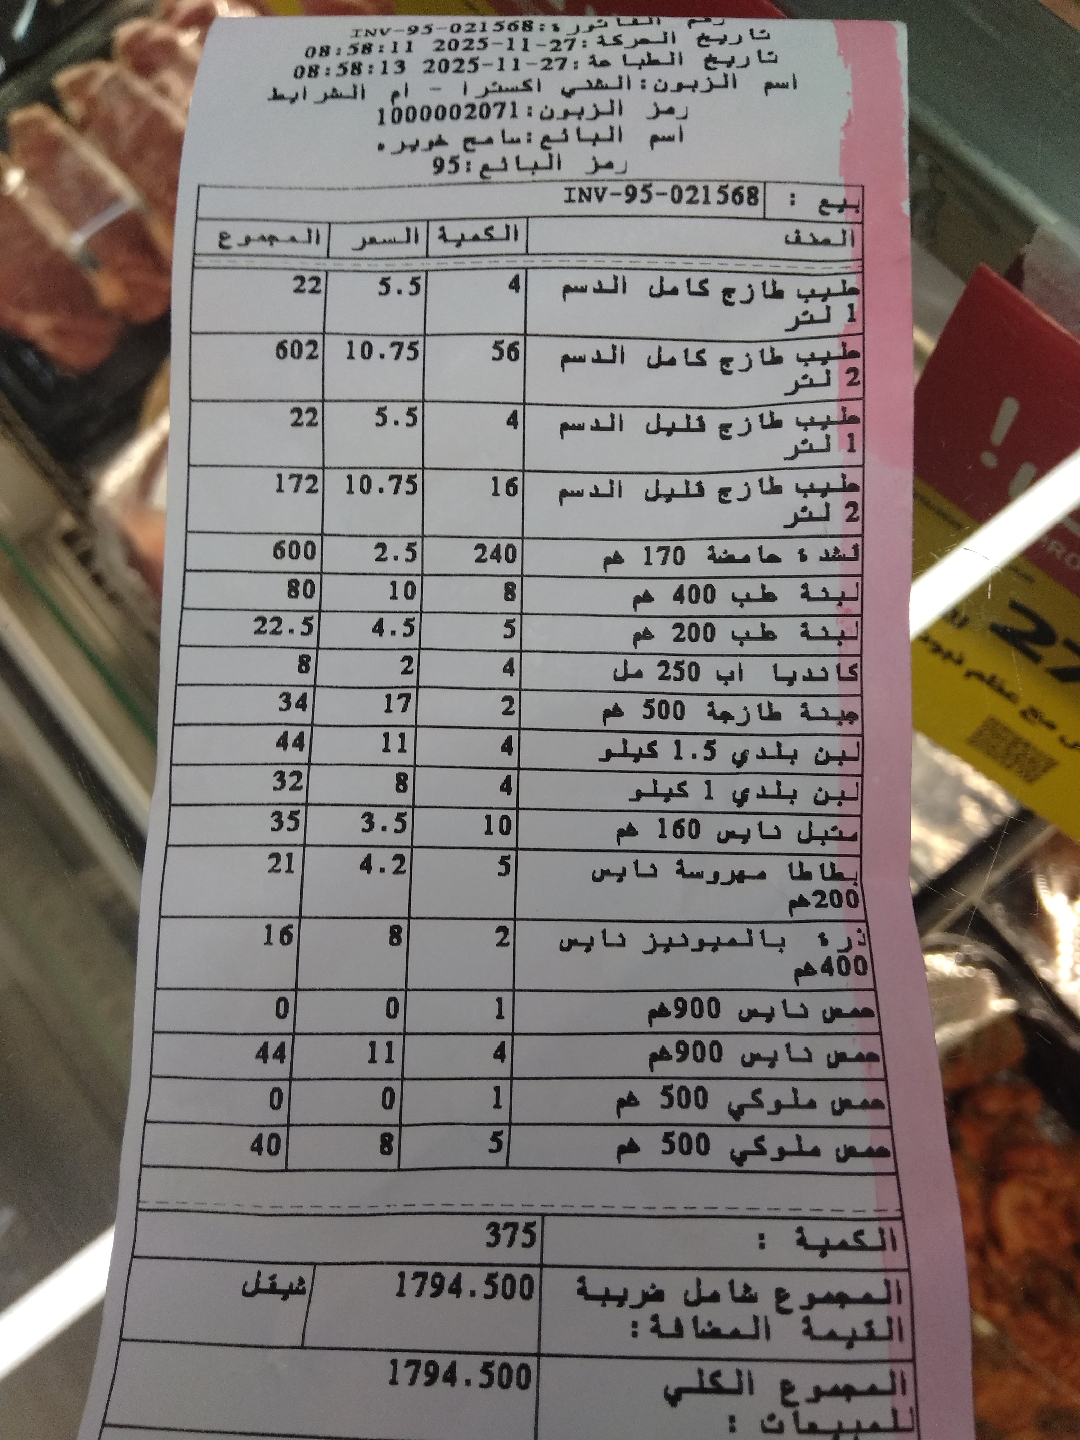 رقم الفاتورة:INV-95-021568
تاريخ الحركة:27-11-2025 08:58:11
تاريخ الطباعة:27-11-2025 08:58:13
اسم الزبون:الشني اكسترا - ام الشرايط
رمز الزبون:1000002071
اسم البائع:سامح خويره
رمز البائع:95
بيع : INV-95-021568
الصنف الكمية السعر المجموع
حليب طازج كامل الدسم 4 5.5 22
1 لتر
حليب طازج كامل الدسم 56 10.75 602
2 لتر
حليب طازج قليل الدسم 4 5.5 22
1 لتر
حليب طازج قليل الدسم 16 10.75 172
2 لتر
قشدة حامضة 170 غم 240 2.5 600
لبنة طب 400 غم 8 10 80
لبنة طب 200 غم 5 4.5 22.5
كانديا اب 250 مل 4 2 8
جبنة طازجة 500 غم 2 17 34
لبن بلدي 1.5 كيلو 4 11 44
لبن بلدي 1 كيلو 4 8 32
متبل نايس 160 غم 10 3.5 35
بطاطا مهروسة نايس 5 4.2 21
200غم
ذرة بالميونيز نايس 2 8 16
400غم
حمص نايس 900غم 1 0 0
حمص نايس 900غم 4 11 44
حمص ملوكي 500 غم 1 0 0
حمص ملوكي 500 غم 5 8 40
الكمية : 375
المجموع شامل ضريبة 1794.500 شيقل
القيمة المضافة:
المجموع الكلي 1794.500
للمبيعات :
27